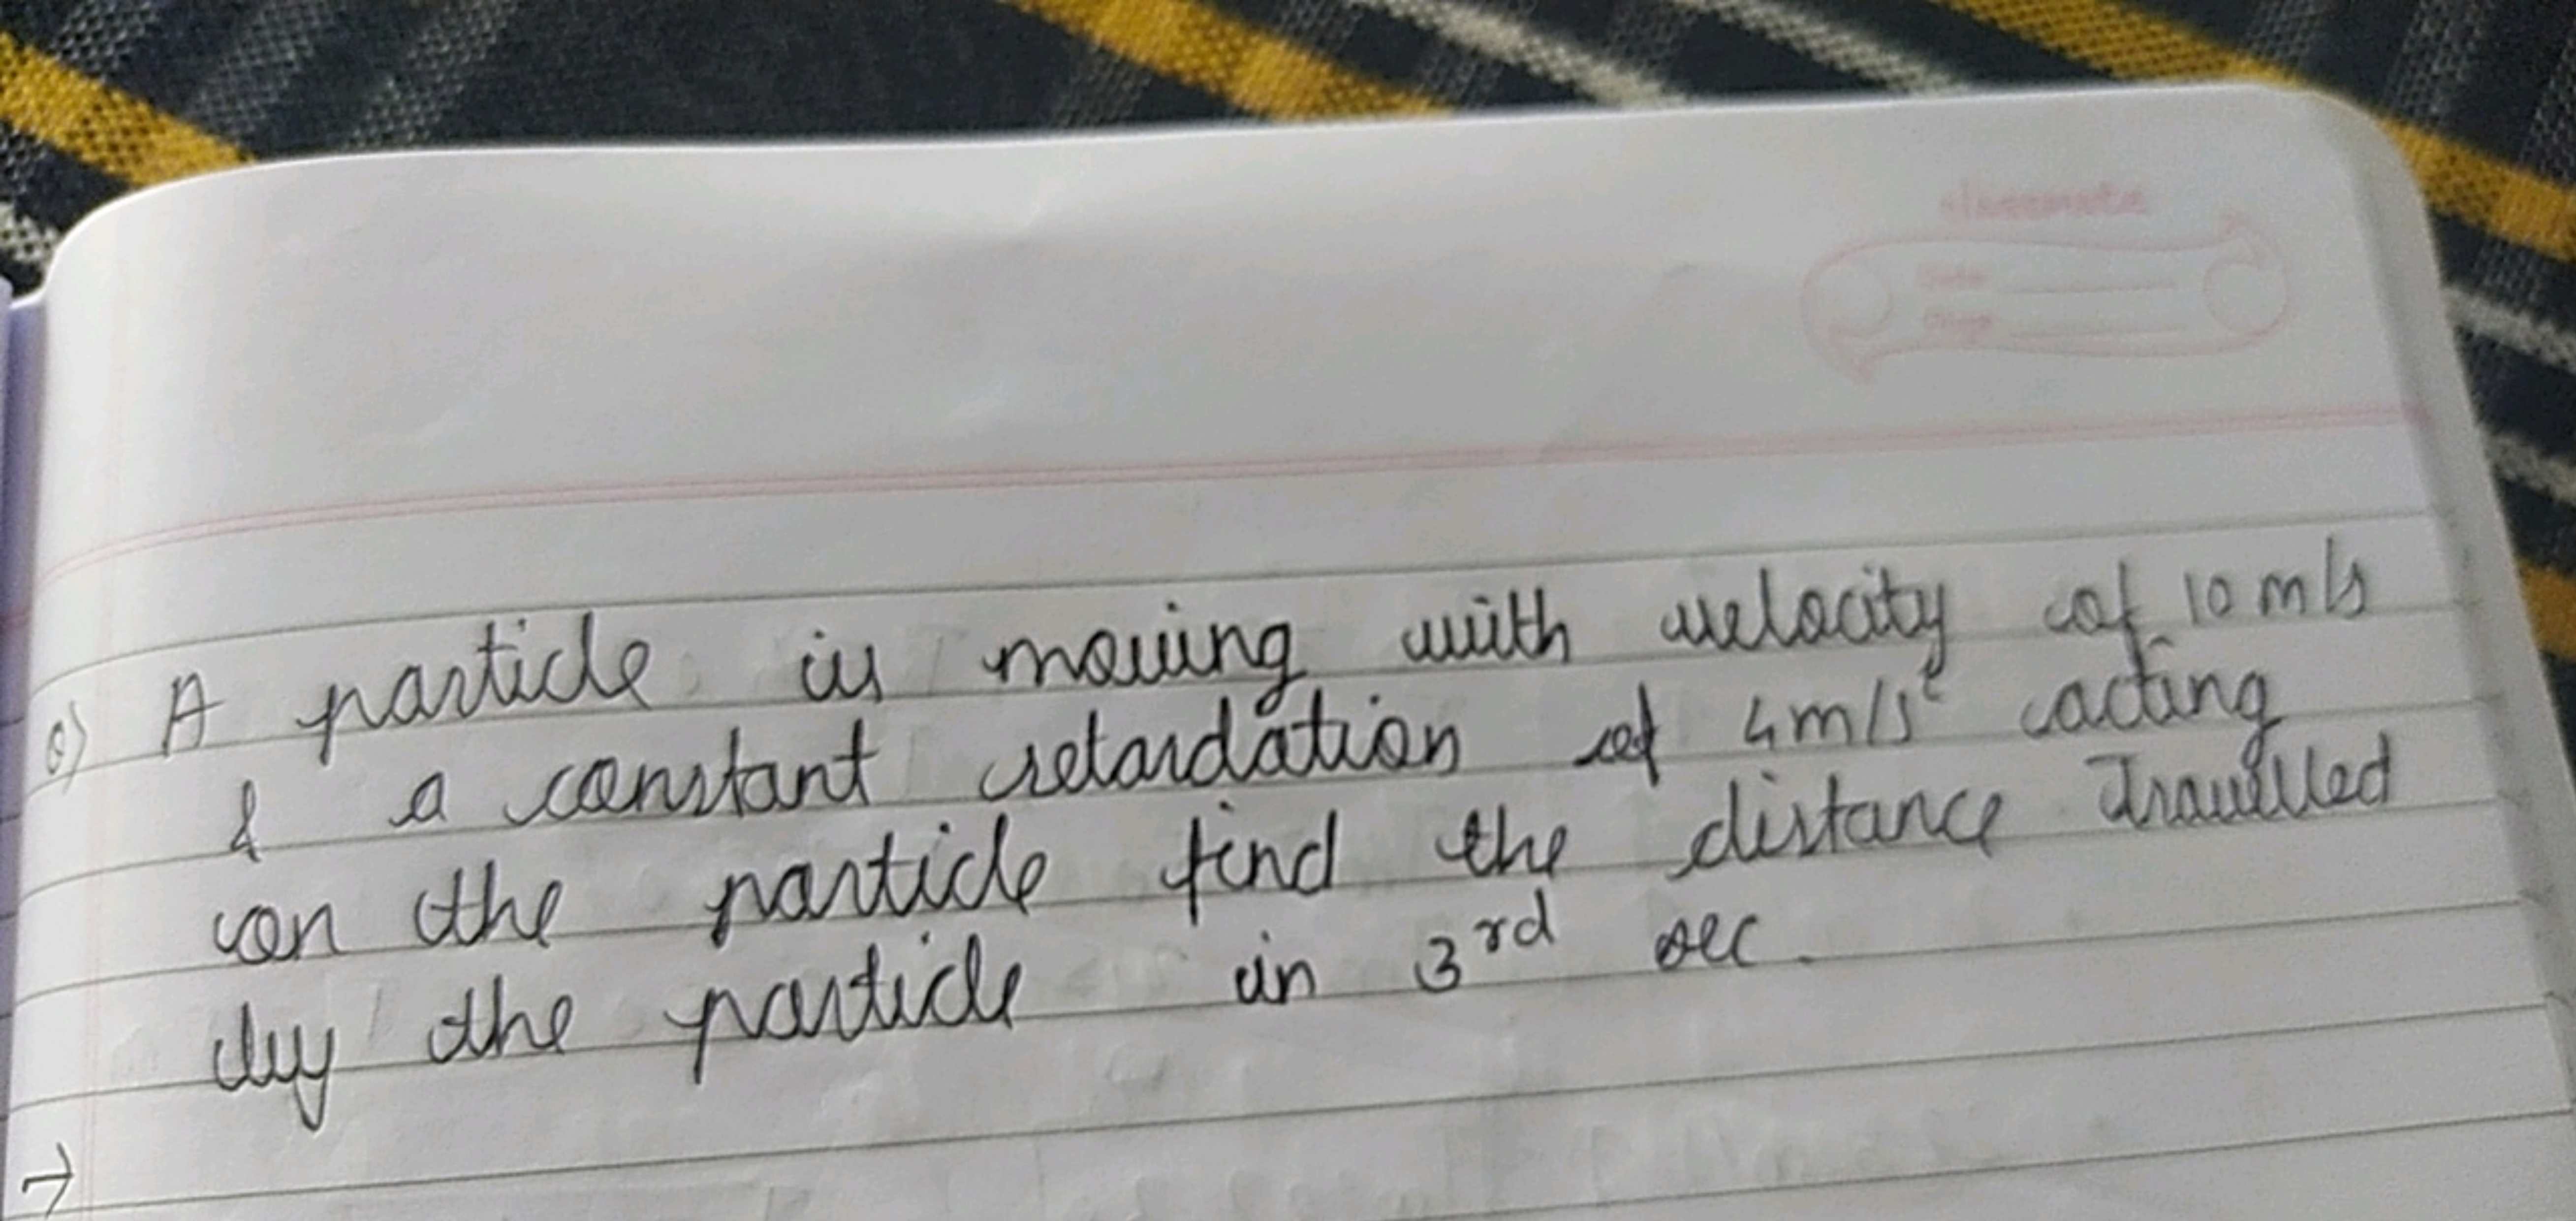 classmate
Date
Page
Q) A particle is moving with velocity of 10 m/s
& a constant retardation of 4m/s² acting
on the particle find the distance Travelled
by the particle in 3rd sec.
→